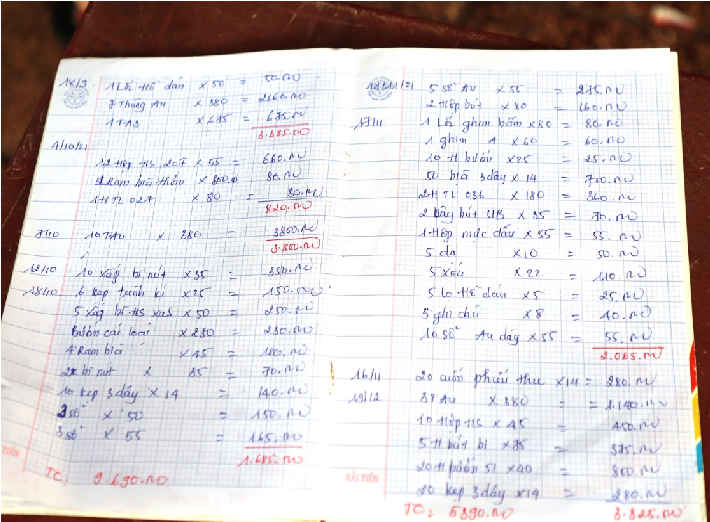 18/9 1 Lốc Hồ dán × 50 = 50.000
7 Thùng Au × 380 = 2660.000
1 TA3 × 675 = 675.000
3.385.000
1/10/21
12 Hộp HS 207 × 55 = 660.000
= 80.000
1 H TL 027 × 80 = 80.000
820.000
7/10 10 T Au × 380 = 3800.000
3.800.000
12/10 10 xấp bì nút × 35 = 350.000
18/10 6 kẹp trình kí × 25 = 150.000
5 xấp bì HS × 50 = 250.000
Bươm các loại × 230 = 230.000
4 Ram bìa × 45 = 180.000
2x bì nút × 35 = 70.000
10 kẹp 3 dây × 14 = 140.000
3 sổ × 50 = 150.000
3 sổ × 55 = 165.000
1.685.000
TC: 9.690.000
5 sổ Au × 55 = 275.000
2 Hộp bút × 80 = 160.000
17/11 1 Lốc ghim bấm × 80 = 80.000
1 ghim A × 60 = 60.000
10 H × 25 = 25.000
50 bìa 3 dây × 14 = 700.000
2 H TL 036 × 180 = 360.000
2 cây bút UB × 35 = 70.000
1 Hộp mực dấu × 55 = 55.000
5 da × 10 = 50.000
5 xoá × 22 = 110.000
5 lọ Hồ dán × 5 = 25.000
5 ghi chú × 8 = 40.000
10 sổ Au dày × 55 = 55.000
2.065.000
16/11 20 cuốn phiếu thu × 14 = 280.000
19/12 3T Au × 380 = 1.140.000
10 Hộp HS × 45 = 450.000
5 H bút bi × 75 = 375.000
20 H bướm 51 × 40 = 800.000
20 kẹp 3 dây × 14 = 280.000
TC: 5390.000 3.325.000